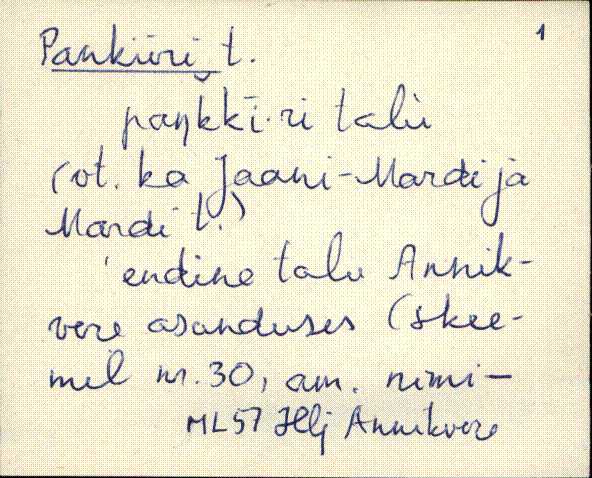 1
Pankiiri t.
paŋkkī·ri talù
(vt. ka Jaani-Mardi ja
Mardi t.)
'endine talu Annik-
vere asunduses (skee-
mil nr. 30, am. nimi-
ML57 Hlj Annikvere